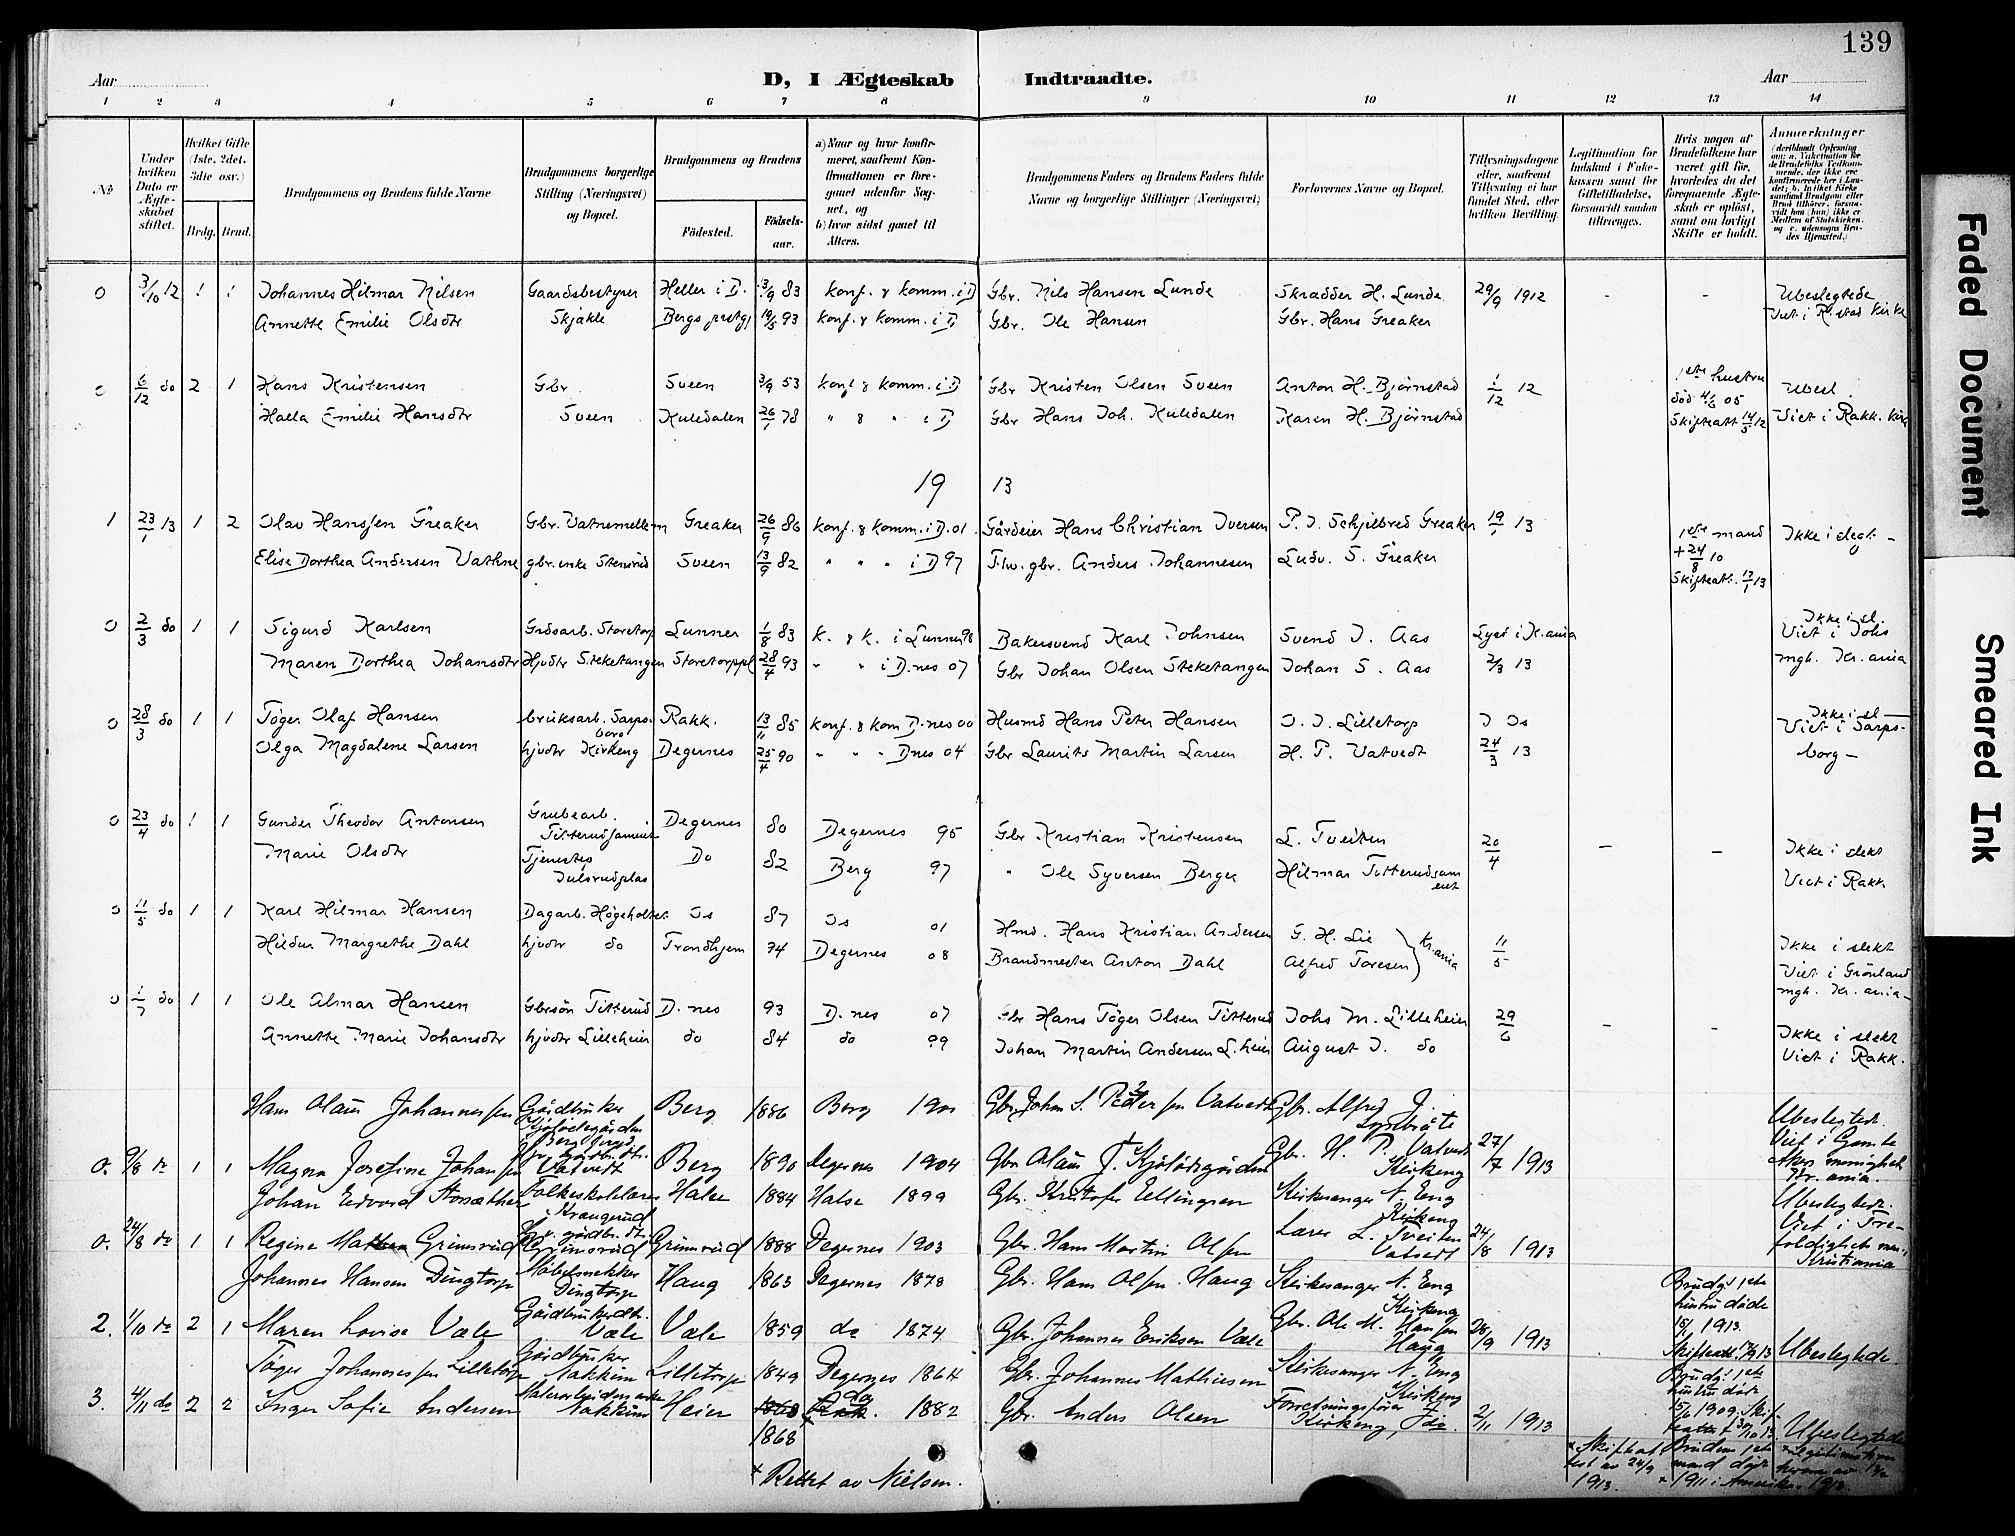 139
Aar
D, I Ægteskab Indtraadte.
Aar
1 2 3 4 5 6 7 8 9 10 11 12 13 14
No
Under hvilken Dato er Ægteskabet stiftet.
Hvilket Gifte (1ste, 2det, 3die osv.)
Brdg. Brud.
Brudgommens og Brudens fulde Navne
Brudgommens borgerlige Stilling (Næringsvei) og Bopæl.
Brudgommens og Brudens
Födested.
Födselsaar.
a) Naar og hvor konfirmeret, saafremt Konfirmationen er foregaaet udenfor Sognet, og
b) hvor sidst gaaet til Alters.
Brudgommens Faders og Brudens Faders fulde Navne og borgerlige Stillinger (Næringsvei)
Forlovernes Navne og Bopæl.
Tillysningsdagene eller, saafremt Tillysning ei har fundet Sted, efter hvilken Bevilling.
Legitimation for Indskud i Enkekassen samt for Giftetilladelse, forsaavidt saadan tiltrænges.
Hvis nogen af Brudefolkene har været gift för, hvorledes da det foregaaende Ægteskab er oplöst, samt om lovligt Skifte er holdt.
Anmerkninger
0 3/10 12 1 1 Johannes Hilmar Nilsen Gaardsbestyrer Heller i D. 3/9 83 konf. & komm. i D Gbr. Nils Hansen Lunde Skrædder H. Lunde 29/9 1912 - - Ubeslegtede
Annette Emilie Olsdtr Skjakle Bergs prstgj 19/5 93 konf. & komm. i D Gbr. Ole Hansen Gbr. Hans Greaker Viet i R.stad kirke
0 6/12 do 2 1 Hans Kristensen Gbr. Sveen 3/9 53 konf & komm. i D Gbr Kristen Olsen Sveen Anton H. Bjørnstad 1/12 12 1ste hustru død 4/6 05 Ubesl.
Halla Emilie Hansdtr Sveen Kuledalen 26/1 78 " & " i D Gbr Hans Joh. Kuledalen Karen H. Bjørnstad Skifteatt 14/5 12 Viet i Rakk. kirk
19 13
1 23/1 13 1 2 Olav Hanssen Greaker Gbr. Vatnemellem Greaker 26/9 86 konf. & komm. i D. 01 Gårdeier Hans Christian Iversen P. I. Schjelbred Greaker 19/1 13 1ste mand Ikke i slegt -
Elise Dorthea Andersen Vathne gbr. enke Stensrud Sveen 13/9 82 " " " i D 97 Fhv. gbr. Anders Johannesen Ludv. S. Greaker +24/8 10
Skifteatt. 17/1 13
0 2/3 do 1 1 Sigurd Karlsen Grdsarb. Storetorp Lunner 1/8 83 k. & k. i Lunner 98 Bakersvend Karl Johnsen Svend J. Aas Lyst i K.ania Ikke i sl. Viet i Johs
Maren Dorthea Johansdtr Hjvdtr Steketangen Storetorppl 28/4 93 " " i D.nes 07 Gbr Johan Olsen Steketangen Johan S. Aas 2/3 13 mgh. Kr. ania
0 28/3 do 1 1 Töger Olaf Hansen bruksarb. Sarpsborg Rakk. 13/11 85 konf. & kom D.nes 00 Husmd Hans Peter Hansen O. J. Lilletorp I Os Ikke i sl Viet i Sarps-
Olga Magdalene Larsen hjvdtr Kirkeng Degernes 25/4 90 " " " Dnes 04 Gbr Laurits Martin Larsen H. P. Vatvedt 24/3 13 borg -
0 23/4 do 1 1 Gunder Theodor Antonsen Grubearb. Titterudsameiet Degernes 80 Degernes 95 Gbr Kristian Kristensen L. Tveiten 20/4 - - Ikke i slekt
Marie Olsdtr Tjenestep Julsrudplas Do 82 Berg 97 " Ole Syversen Berger Hilmar Titterudsameiet Viet i Rakk
0 11/5 do 1 1 Karl Hilmar Hansen Dagarb. Högeholtet Os 87 Os 01 Hmd. Hans Kristian Andersen G. H. Lie Kr.ania 11/5 Ikke i slekt
Hildur Margrethe Dahl hjvdtr do Trondhjem 94 Degernes 08 Brandmester Anton Dahl Alfred Toresen Viet i Grönland mgh. Kr. ania -
0 1/7 do 1 1 Ole Almar Hansen Gbrsön Titterud D. nes 93 D. nes 07 Gbr Hans Töger Olsen Titterud Johs M. Lilleheier 29/6 - - Ikke i slekt
Annette Marie Johansdtr hjvdtr Lilleheier do 84 do 99 Johan Martin Andersen L.heier August J. do Viet i Rakk.
Hans Olaus Johannessen Gårdbruker Berg 1886 Berg 1901 Gbr. John S. Pedersen Vatvedt Gbr. Alfred J. Ubeslegtede.
0. 9/8 do 1 1 Magna Josefine Johansen Vatvedt Berg 1890 Degernes 1904 Gbr. Olaus J. Kjølødegården Gbr. H. P. Vatvedt Kirkeng 27/7 1913 Viet i Gamle Akers menighet Kr. ania.
Johan Edvard Folkeskolelærer Krangerud Halse 1884 Halse 1899 Gbr. Kristofer Ellingsen Kirkesanger N. Eng Kirkeng Ubeslegtede.
0. 24/8 do 1 1 Regine Grimsrud Grimsrud Grimsrud 1888 Degernes 1903 Gbr. Hans Martin Olsen Lærer L. Tveiten Vatvedt 24/8 1913 Viet i Trefoldighets men. Kristiania
Johannes Hansen Dingtorp Møbelsnekker Dingtorp Haug 1863 Degernes 1878 Gbr. Hans Olsen Haug Kirkesanger N. Eng Kirkeng Brudg. 1ste hustru døde
2. 1/10 do 2 1 Maren Lovise Væle Gårdbrukerdt. Væle Væle 1859 do 1874 Gbr. Johannes Eriksen Væle Gbr. Ole M. Hansen Haug 28/9 1913 1913. Ubeslegtede.
Töger Johannessen Lilletorp Gårdbruker Nakkim Lilletorp 1849 Degernes 1864 Gbr. Johannes Mathiesen Kirkesanger N. Eng Kirkeng Brudg. 1ste hustru døde
3. 4/11 do 2 2 Inger Sofie Andersen Nakkim Heier 1868 do 1882 Gbr. Anders Olsen Forretningsfører Kirkeng, Idd 2/11 1913 1909. Ubeslegtede
1868
× Skifteattest av 24/9 1913. Brudens 1ste mand døde × 1911 i Amerika.
× Rettet av Nielsen.
Faded Document
Smeared Ink